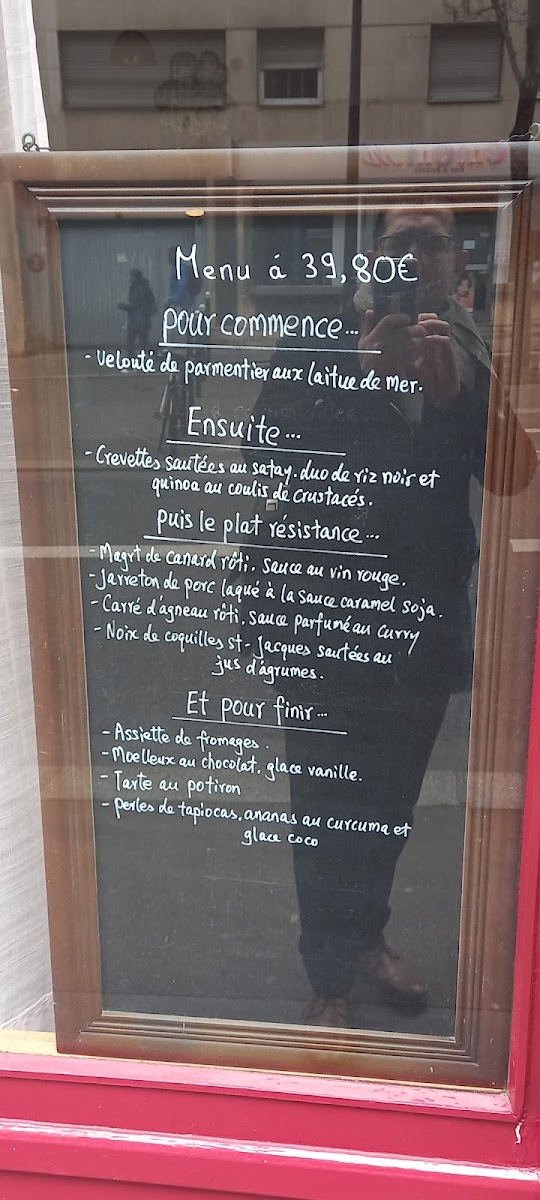 Menu á 39,80€
pour commence...
- Velouté de parmentier aux laitue de Mer.
Ensuite...
- Crevettes sautées au satay. duo de riz noir et
quinoa au coulis de crustacés.
puis le plat résistance...
- Magrt de canard rôti. sauce au vin rouge.
- Jarreton de porc laqué à la sauce caramel soja.
- Carré d'agneau rôti. sauce parfumé au curry
- Noix de coquilles st-Jacques sautées au
jus d'agrumes.
Et pour finir...
- Assiette de fromages.
- Moelleux au chocolat. glace vanille.
- Tarte au potiron
- perles de tapiocas. ananas au curcuma et
glace coco